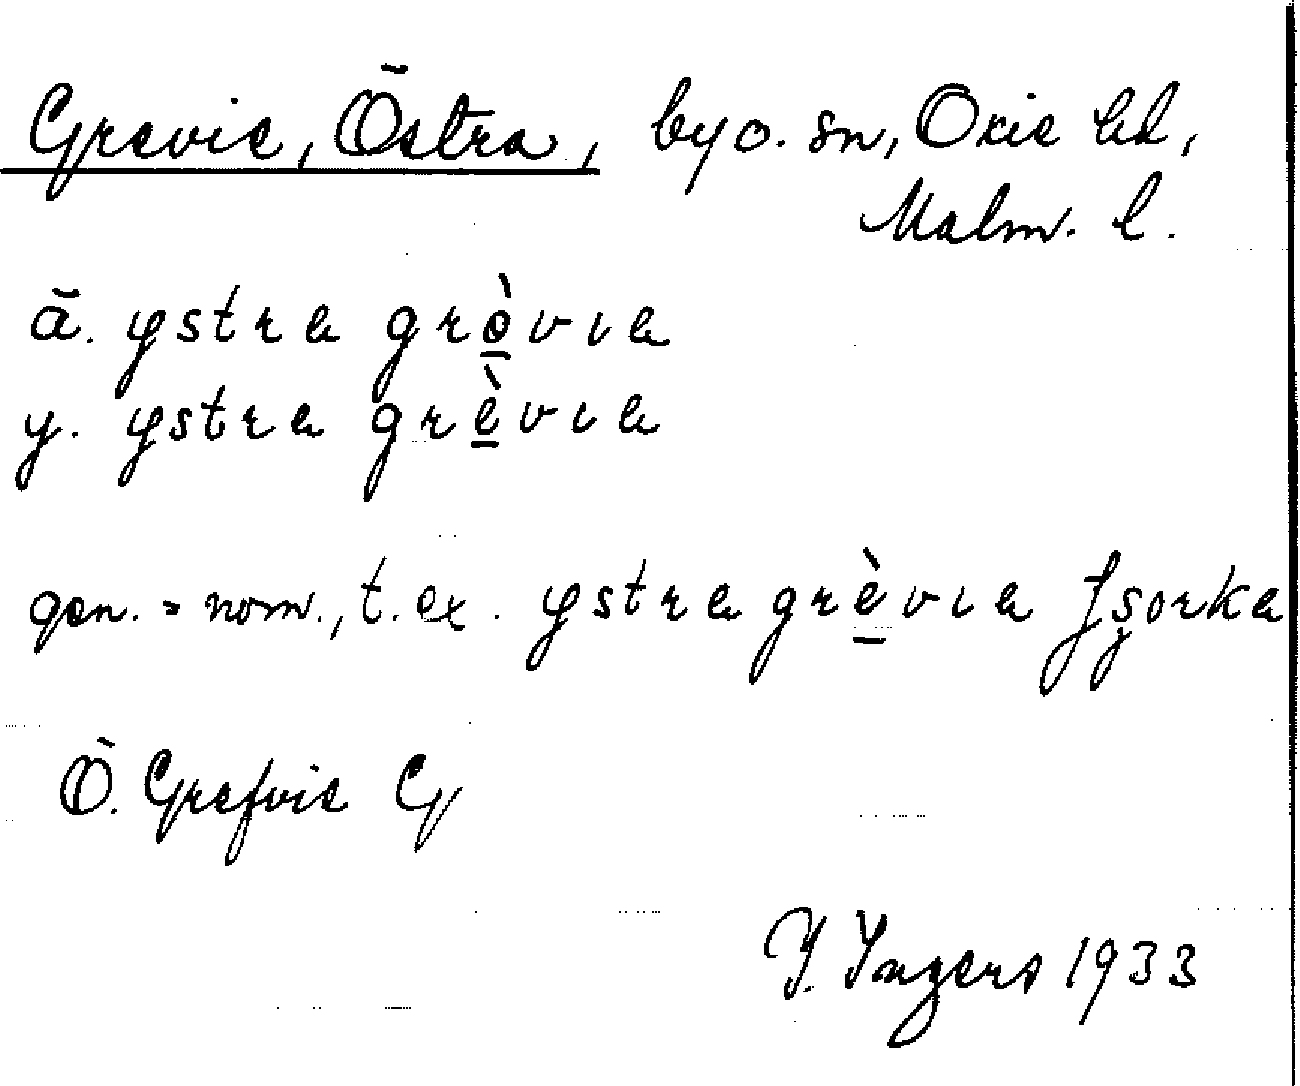 Grevie, Östra, by o. sn, Oxie hd,
Malm. l.
ä. ystra grèvıa
y. ystra grèvıa
gen. = nom., t. ex. ystra grèvıa
Ö. Grefvie G
I. Ingers 1933